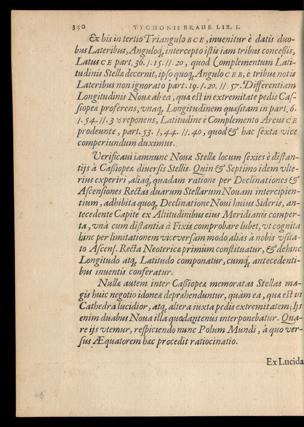 350 TYCHONIS BRAHE LIB. I.
Ex his in tertio Triangulo BCE, invenitur è datis duo-
bus Lateribus, Anguloq, intercepto istis iam tribus concessis,
Latus CE part. 36. 15. 20, quod Complementum Lati-
tudinis Stellæ decernit, ipso quoq, Angulo CEB, è tribus notis
Lateribus non ignorato part. 19. 1. 20. 57. Differentiam
Longitudinis Novæ ab ea, quæ est in extremitate pedis Cas-
siopeæ proferens, vnaq, Longitudinem quæsitam in part. 6.
1. 54. 3 vt reponens, Latitudine è Complemento Arcus CE
prodeunte, part. 53. 44. 40, quod & hac sexta vice
comperiundum duximus.
Verificavi iamnunc Novæ Stellæ locum sexies è distan-
tijs à Cassiopeæ diversis Stellis Quin & Septimo idem vlte-
rius experiri, aliaq, quadam ratione per Declinationes &
Ascensiones Rectas duarum Stellarum Novam intercipien-
tium, adhibita quoq, Declinatione Novi huius Sideris, an-
tecedente Capite ex Altitudinibus eius Meridianis comper-
ta, vnà cum distantia è Fixis comprobare lubet, vt cognita
hinc per limitationem vice versam modo aliàs à nobis vsita-
to Ascens. Recta Neotericæ primùm constituatur, & dehinc
Longitudo atq, Latitudo componatur, cumq, antecedenti-
bus inventis conferatur.
Nullæ autem inter Cassiopeæ memoratas Stellas ma-
gis huic negotio idoneæ deprehenduntur, quàm ea, quæ est in
Cathedra lucidior, atq, altera iuxta pedis extremitatem; Ij
enim duabus Nova illa quodantenus interponebatur. Qua-
re ijs vtemur, respiciendo nunc Polum Mundi, à quo ver-
sus Æquatorem hac procedit ratiocinatio.
Ex Lucida